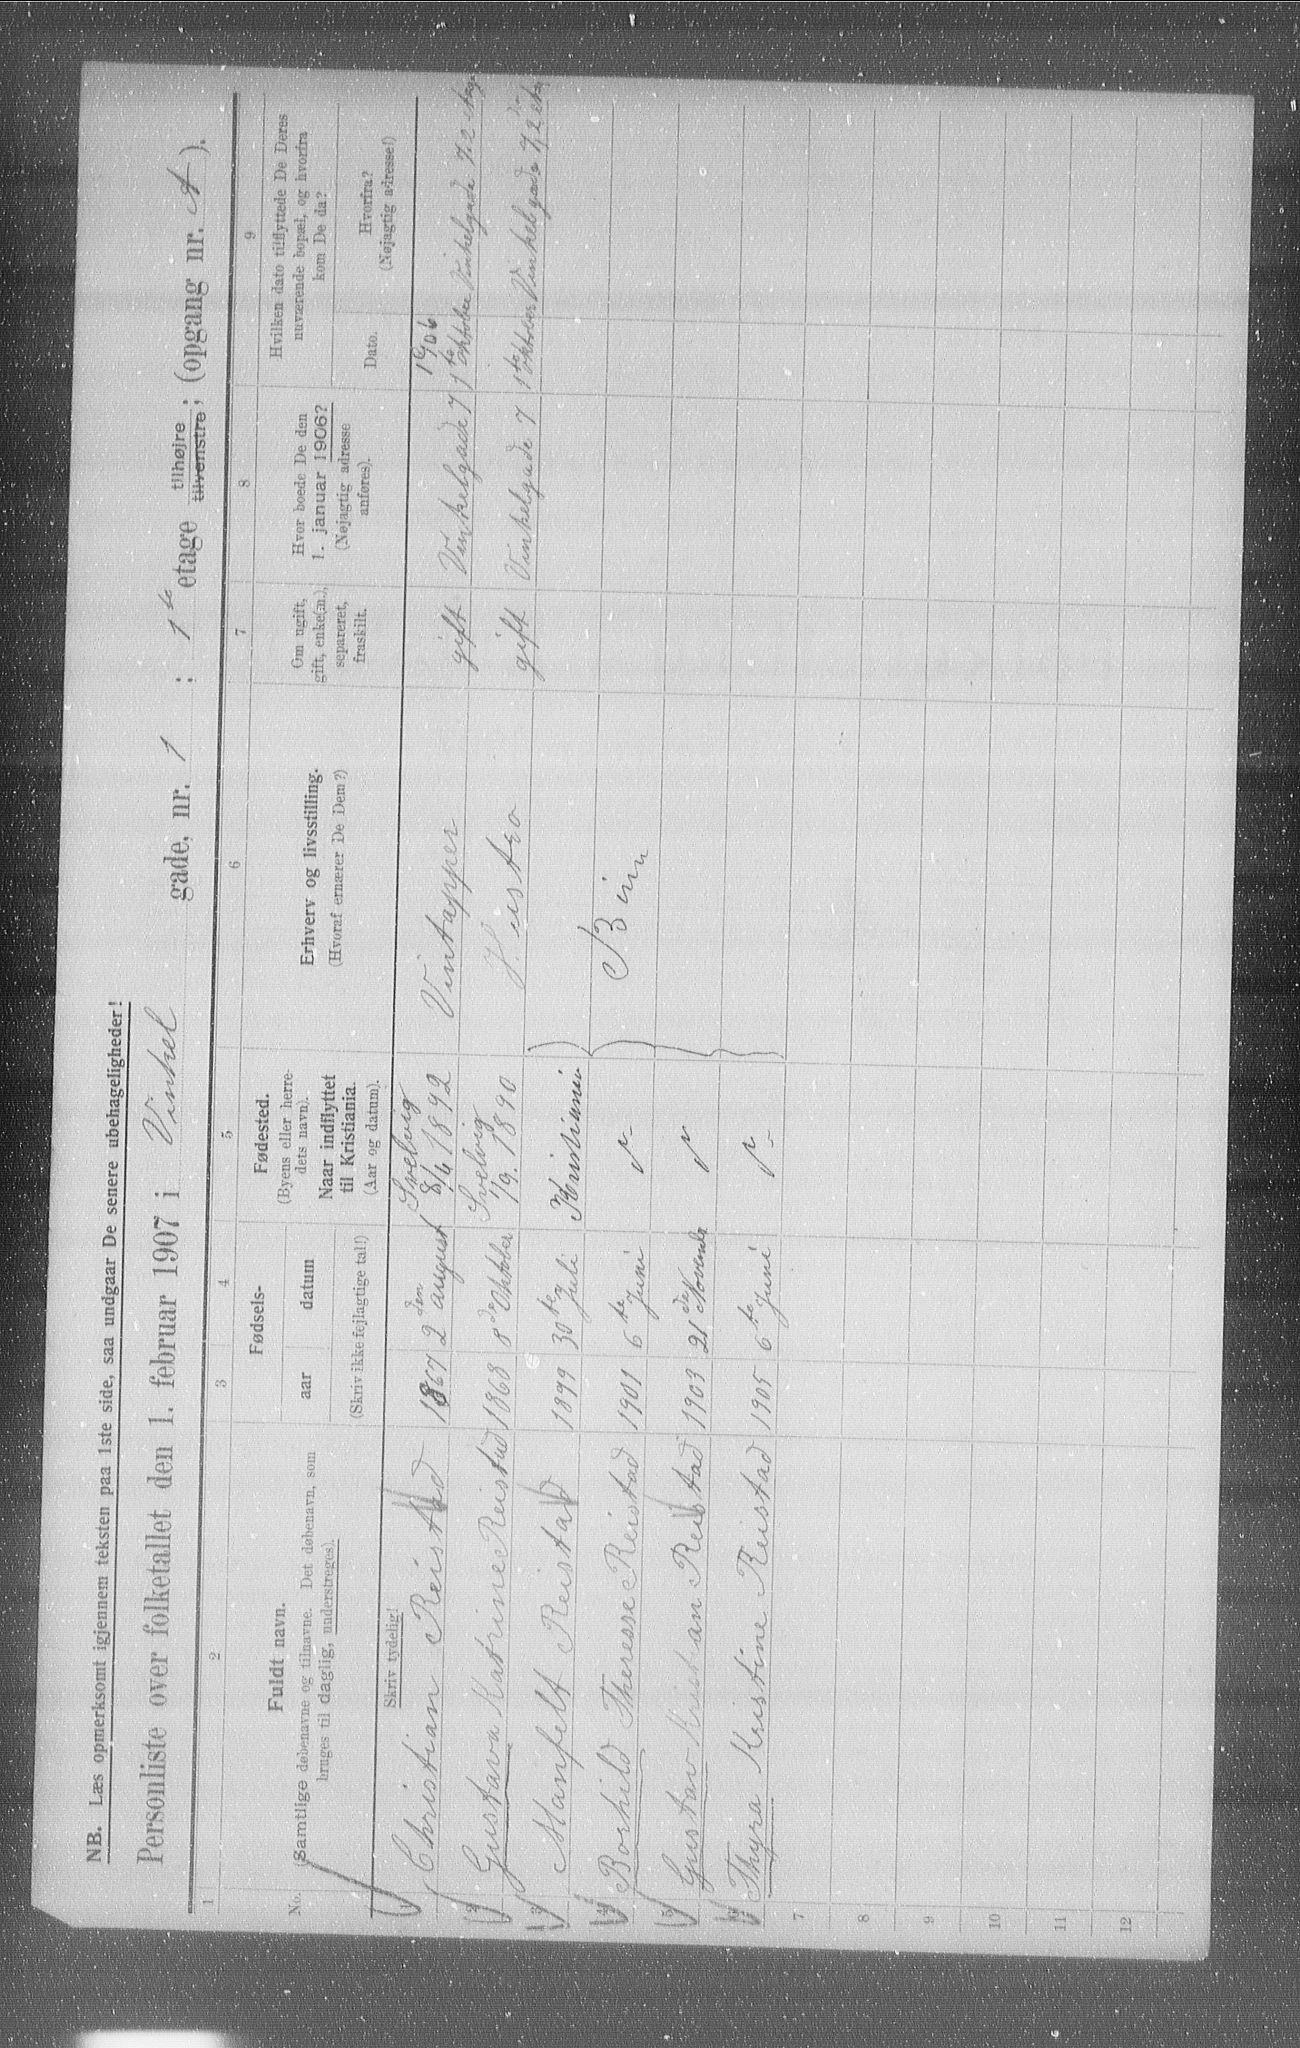 NB. Læs opmerksomt igjennem teksten paa 1ste side, saa undgaar De senere ubehageligheder!
Personliste over folketallet den 1. februar 1907 i Vinkel gade, nr. 1 : 1te etage tilhøjre tilvenstre; (opgang nr. A).
1 2 3 4 5 6 7 8 9
No.
Fuldt navn.
(Samtlige døbenavne og tilnavne. Det døbenavn, som
bruges til daglig, understreges).
Skriv tydelig!
Fødsels-
aar
datum
(Skriv ikke fejlagtige tal!)
Fødested.
(Byens eller herre-
dets navn).
Naar indflyttet
til Kristiania.
(Aar og datum).
Erhverv og livsstilling.
(Hvoraf ernærer De Dem?)
Om ugift,
gift, enke(m.),
separeret,
fraskilt.
Hvor boede De den
1. januar 1906?
(Nøjagtig adresse
anføres).
Hvilken dato tilflyttede De Deres
nuværende bopæl, og hvorfra
kom De da?
Dato.
Hvorfra?
(Nøjagtig adresse!)
Christian Reistad 1867 2den august Svelvig 8/4 1892 Vintapper gift Vinkelgade 7 1906 1te Oktober Vinkelgade 7,2
2 Gustava Katrine Reistad 1868 8de Oktober Svelvig 1/9. 1890 Hustro gift Vinkelgade 7 1te Oktober Vinkelgade 7,2
3 Manfelt Reistad 1899 30te Juli Kristiania
4 Borhild Theresse Reistad 1901 6te Juni Børn
5 Gustav Kristian Reistad 1903 21de
Thyra Kristine Reistad 1905 6te Juni
7
8
9
10
11
12